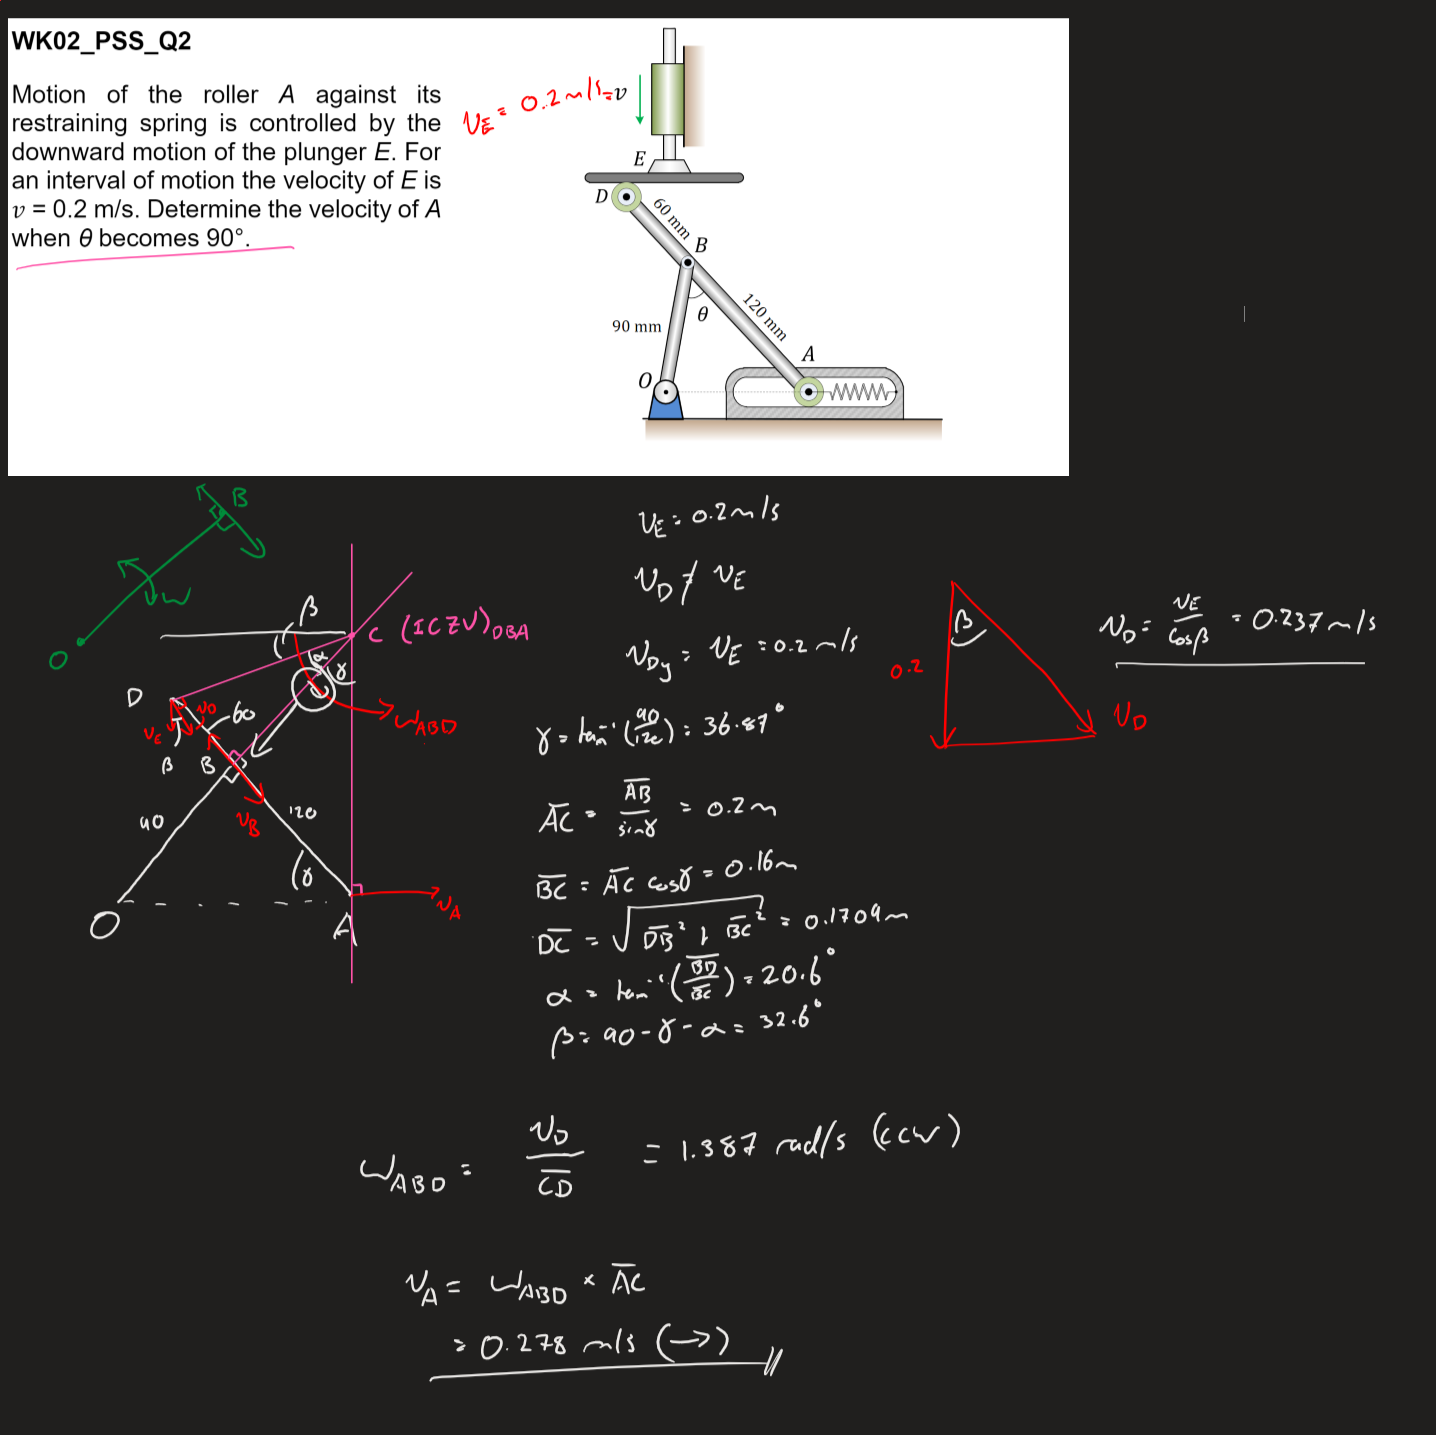 WK02_PSS_Q2
Motion of the roller A against its
restraining spring is controlled by the
downward motion of the plunger E. For
an interval of motion the velocity of E is
v = 0.2 m/s. Determine the velocity of A
when θ becomes 90°.
v_E = 0.2 m/s = v
E
D
60 mm
B
θ
120 mm
90 mm
A
O
B
ω
O
β
C (ICZV)_DBA
α
γ
D
v_D
60
ω_ABD
v_E
β
B
90
v_B
120
γ
v_A
O
A
v_E = 0.2 m/s
v_D ≠ v_E
v_Dy = v_E = 0.2 m/s
γ = tan⁻¹(90/120) = 36.87°
AC = AB/sinγ = 0.2m
BC = AC cosγ = 0.16m
DC = √(DB² + BC²) = 0.1709m
α = tan⁻¹(BD/BC) = 20.6°
β = 90 - γ - α = 32.6°
β
0.2
v_D
v_D = v_E/cosβ = 0.237 m/s
ω_ABD = v_D/CD = 1.387 rad/s (ccw)
v_A = ω_ABD × AC
= 0.278 m/s (→)